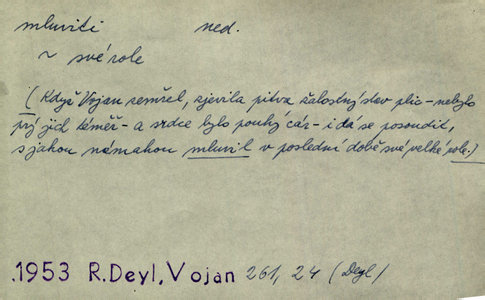 mluviti ned.
~ své role
(Když Vojan zemřel, zjevila pitva žalostný stav plic – nebylo
prý jich téměř – a srdce bylo pouhý cár – i dá se posoudit,
s jakou námahou mluvil v poslední době své velké role.)
.1953 R.Deyl, Vojan 261, 24 (Deyl)